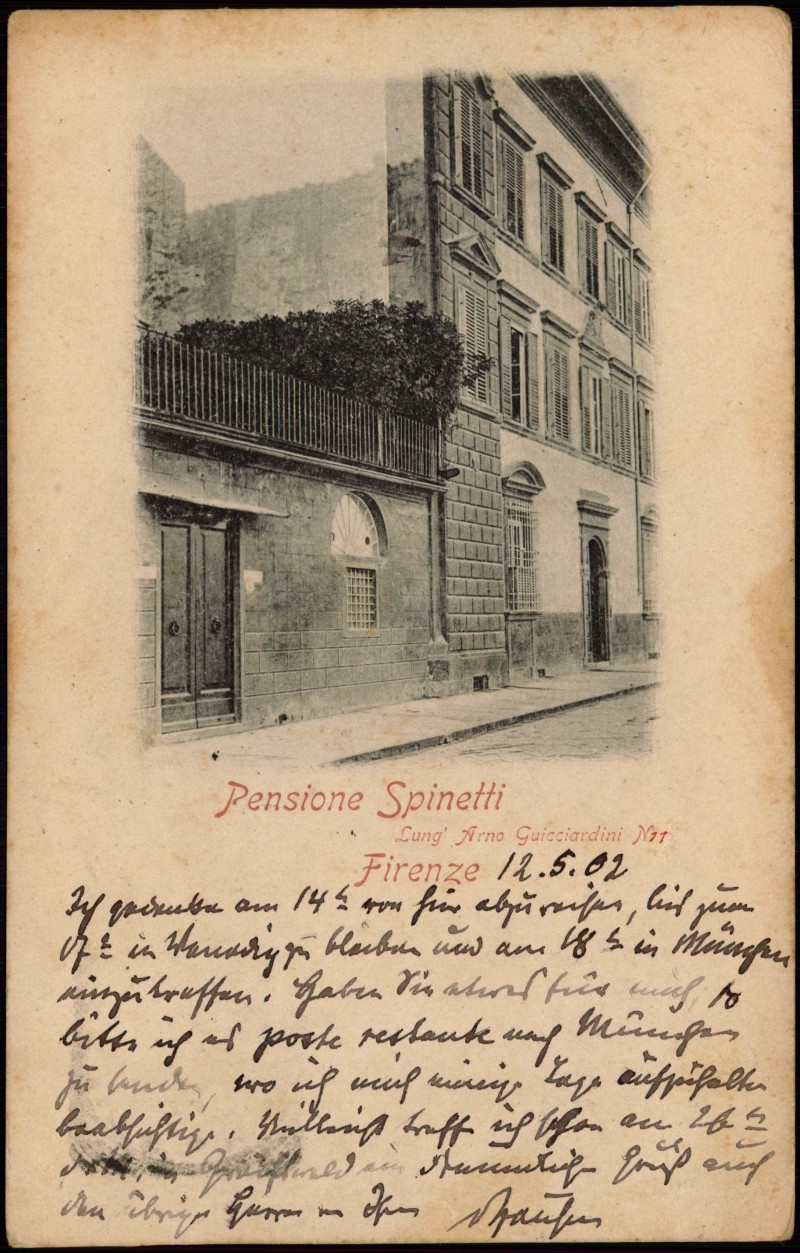 Pensione Spinetti
Lung' Arno Guicciardini N11
Firenze 12.5.02
Ich gedenke am 14t von hier abzureisen, bis zum
17t in Venedig zu bleiben und am 18t in München
einzutreffen. Haben Sie etwas für mich, so
bitte ich es poste restante nach München
zu senden, wo ich mich einige Tage aufzuhalten
beabsichtige. Vielleicht treff ich schon am
in Greifswald ein Gruß auch
den übrigen Herren